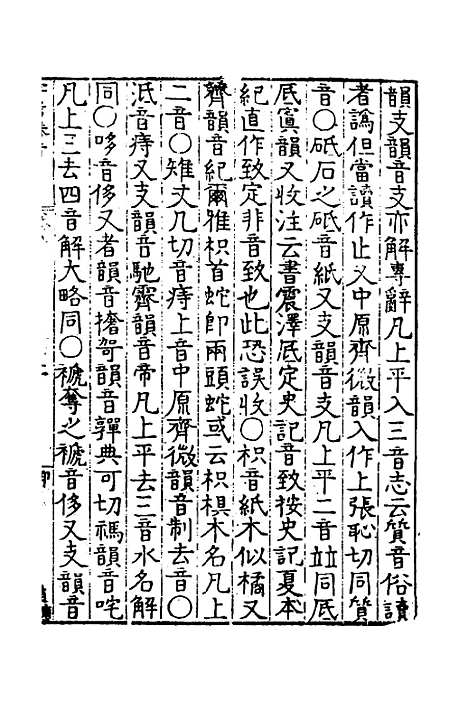 韻支韻音支亦解專辭凡上平入三音志云質音俗讀
者譌但當讀作止又中原齊微韻入作上張恥切同質
音○砥石之砥音紙又支韻音支凡上平二音並同厎
厎寘韻又收注云書震澤厎定史記音致按史記夏本
紀直作致定非音致也此恐誤收○枳音紙木似橘又
齊韻音紀爾雅枳首蛇卽兩頭蛇或云枳椇木名凡上
二音○雉丈几切音痔上音中原齊微韻音制去音○
泜音痔又支韻音馳齊韻音帝凡上平去三音水名解
同○哆音侈又者韻音撦哿韻音嚲典可切禡韻音咤
凡上三去四音解大略同○褫奪之褫音侈又支韻音